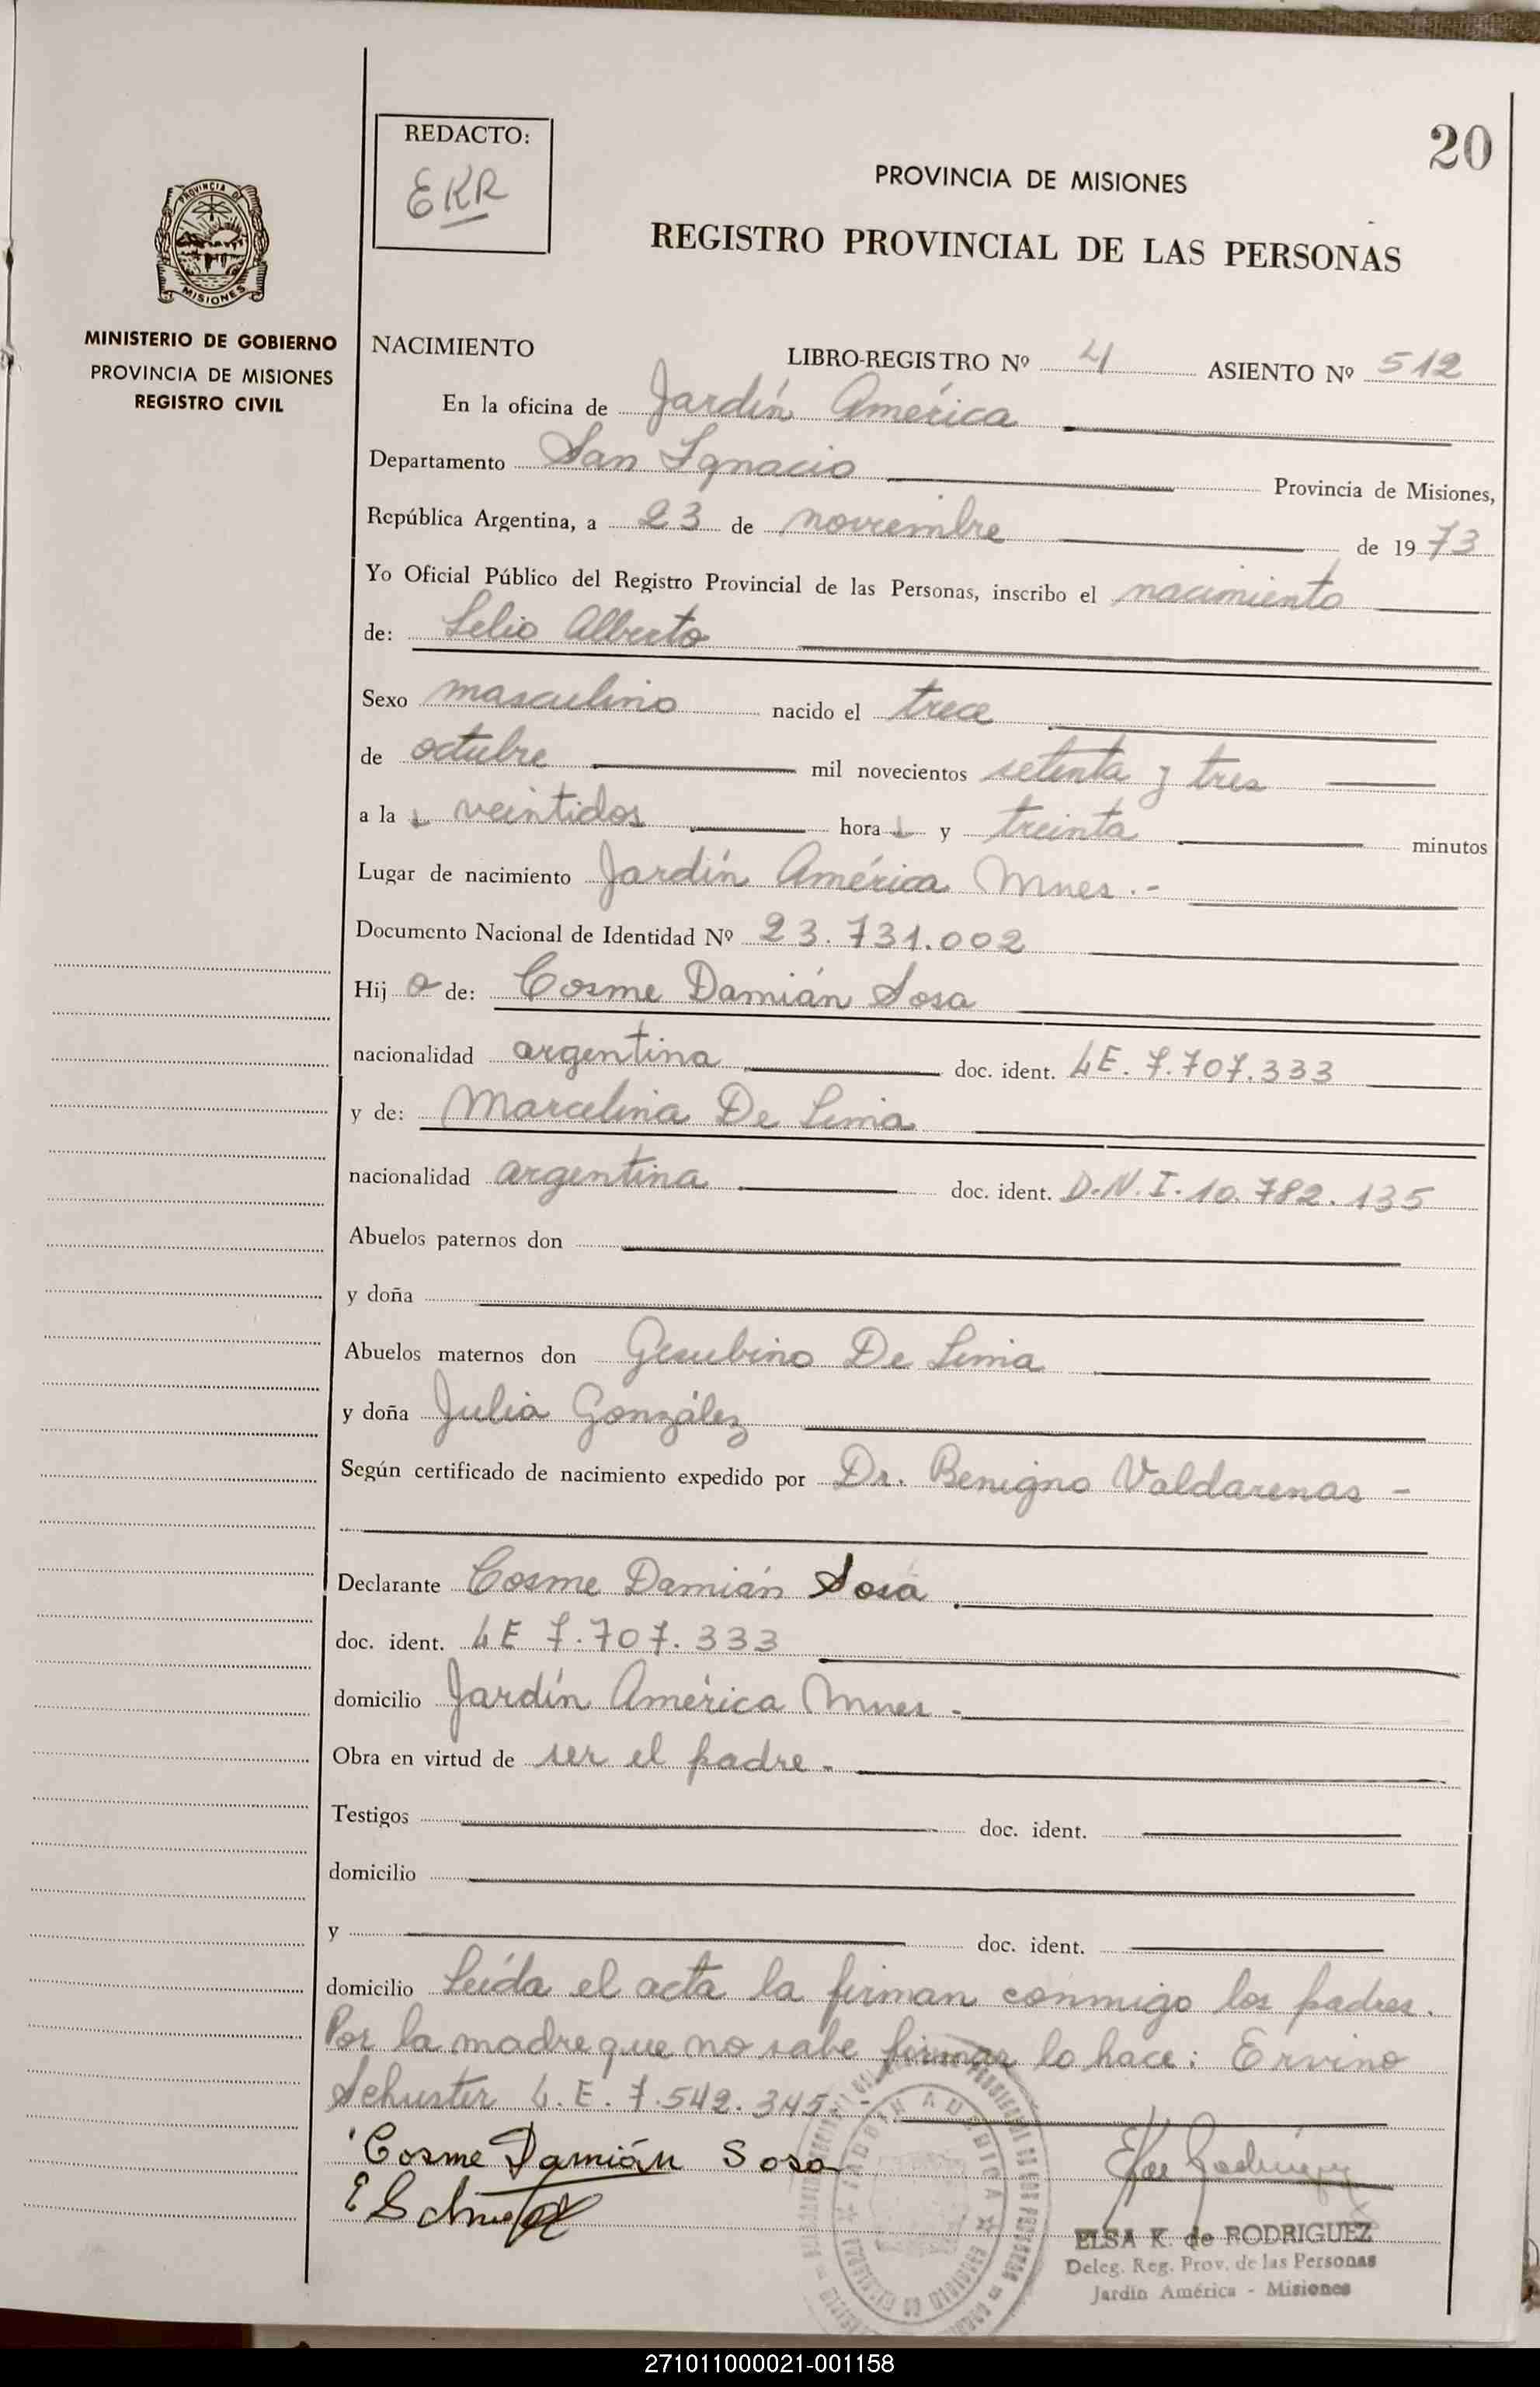 20
REDACTO:
EKR
PROVINCIA DE MISIONES
REGISTRO PROVINCIAL DE LAS PERSONAS
PROVINCIA DE
MISIONES
MINISTERIO DE GOBIERNO
PROVINCIA DE MISIONES
REGISTRO CIVIL
NACIMIENTO LIBRO-REGISTRO Nº 4 ASIENTO Nº 512
En la oficina de Jardín América
Departamento San Ignacio Provincia de Misiones,
República Argentina, a 23 de noviembre de 1973
Yo Oficial Público del Registro Provincial de las Personas, inscribo el nacimiento
de: Lelio Alberto
Sexo masculino nacido el trece
de octubre mil novecientos setenta y tres
a la s veintidos hora s y treinta minutos
Lugar de nacimiento Jardín América Mnes.-
Documento Nacional de Identidad Nº 23.731.002
Hij o de: Cosme Damián Sosa
nacionalidad argentina doc. ident. LE. 7.707.333
y de: Marcelina De Lima
nacionalidad argentina doc. ident. D.N.I. 10.782.135
Abuelos paternos don
y doña
Abuelos maternos don De Lima
y doña Julia González
Según certificado de nacimiento expedido por Dr. Benigno Valdarenas -
Declarante Cosme Damián Sosa
doc. ident. LE 7.707.333
domicilio Jardín América Mnes -
Obra en virtud de ser el padre -
Testigos doc. ident.
domicilio
y doc. ident.
domicilio Leída el acta la firman conmigo los padres.
Por la madre que no sabe firmar lo hace: Ervino
Schuster L.E. 7.542.345.-
Cosme Damián Sosa
ELSA K. de RODRIGUEZ
Deleg. Reg. Prov. de las Personas
Jardín América - Misiones
271011000021-001158